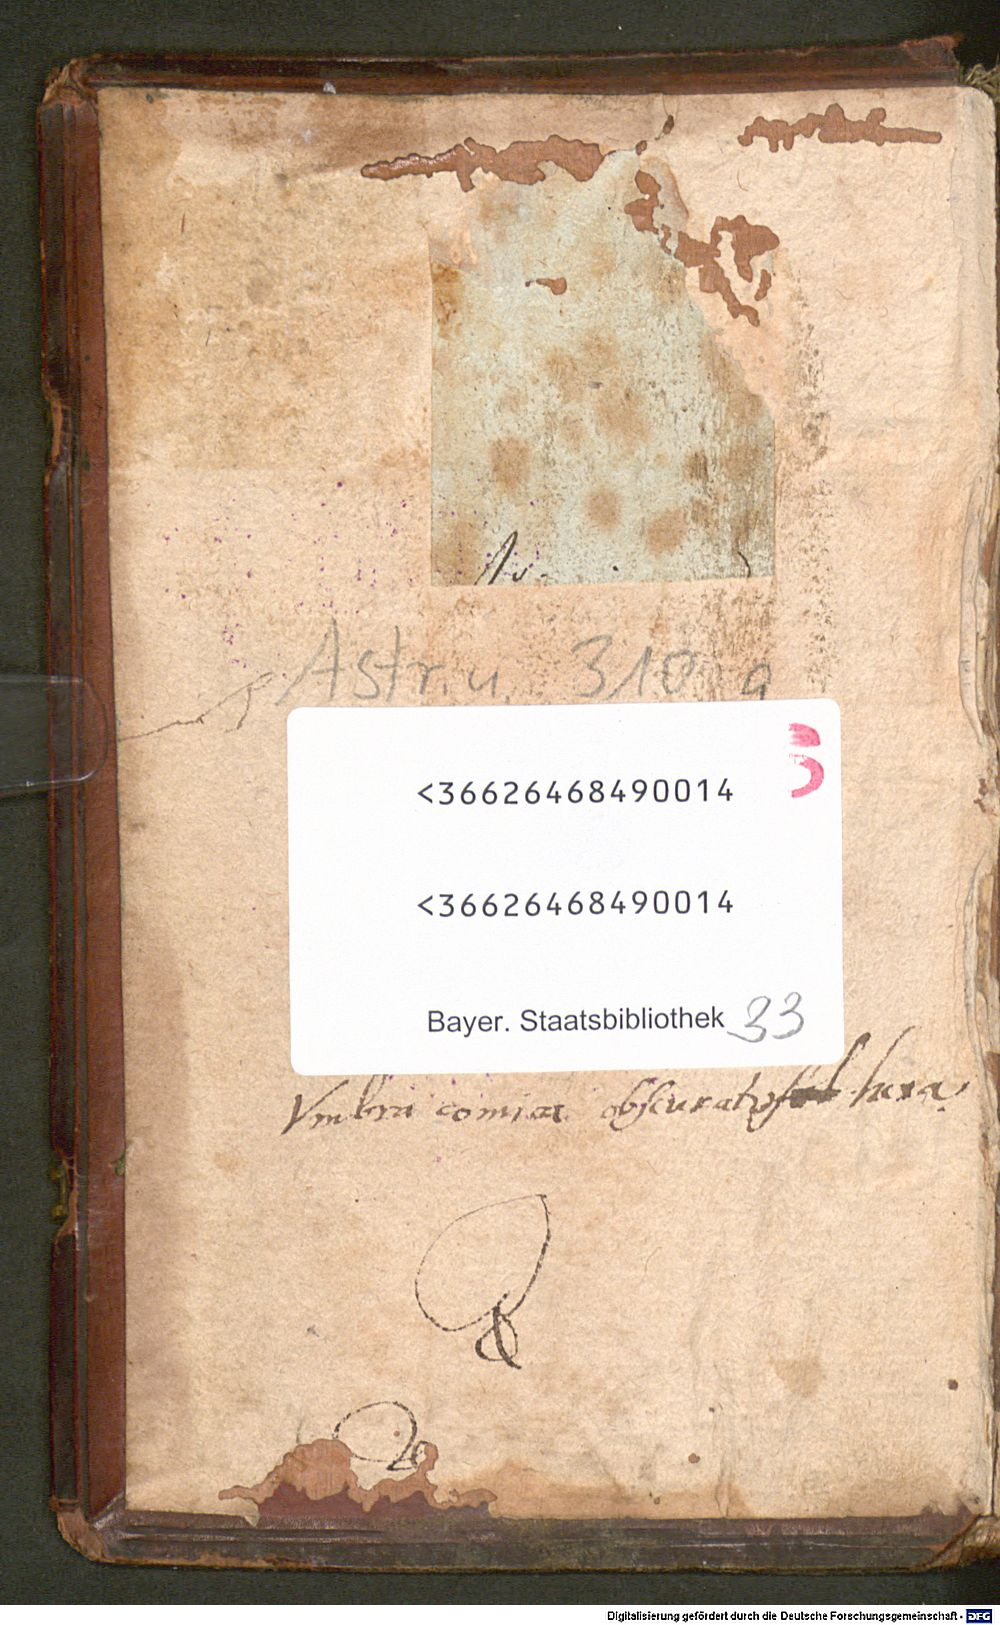 Astr. u. 310 g
<36626468490014
<36626468490014
Bayer. Staatsbibliothek 33
Vmbra comica obscurat
Digitalisierung gefördert durch die Deutsche Forschungsgemeinschaft - DFG